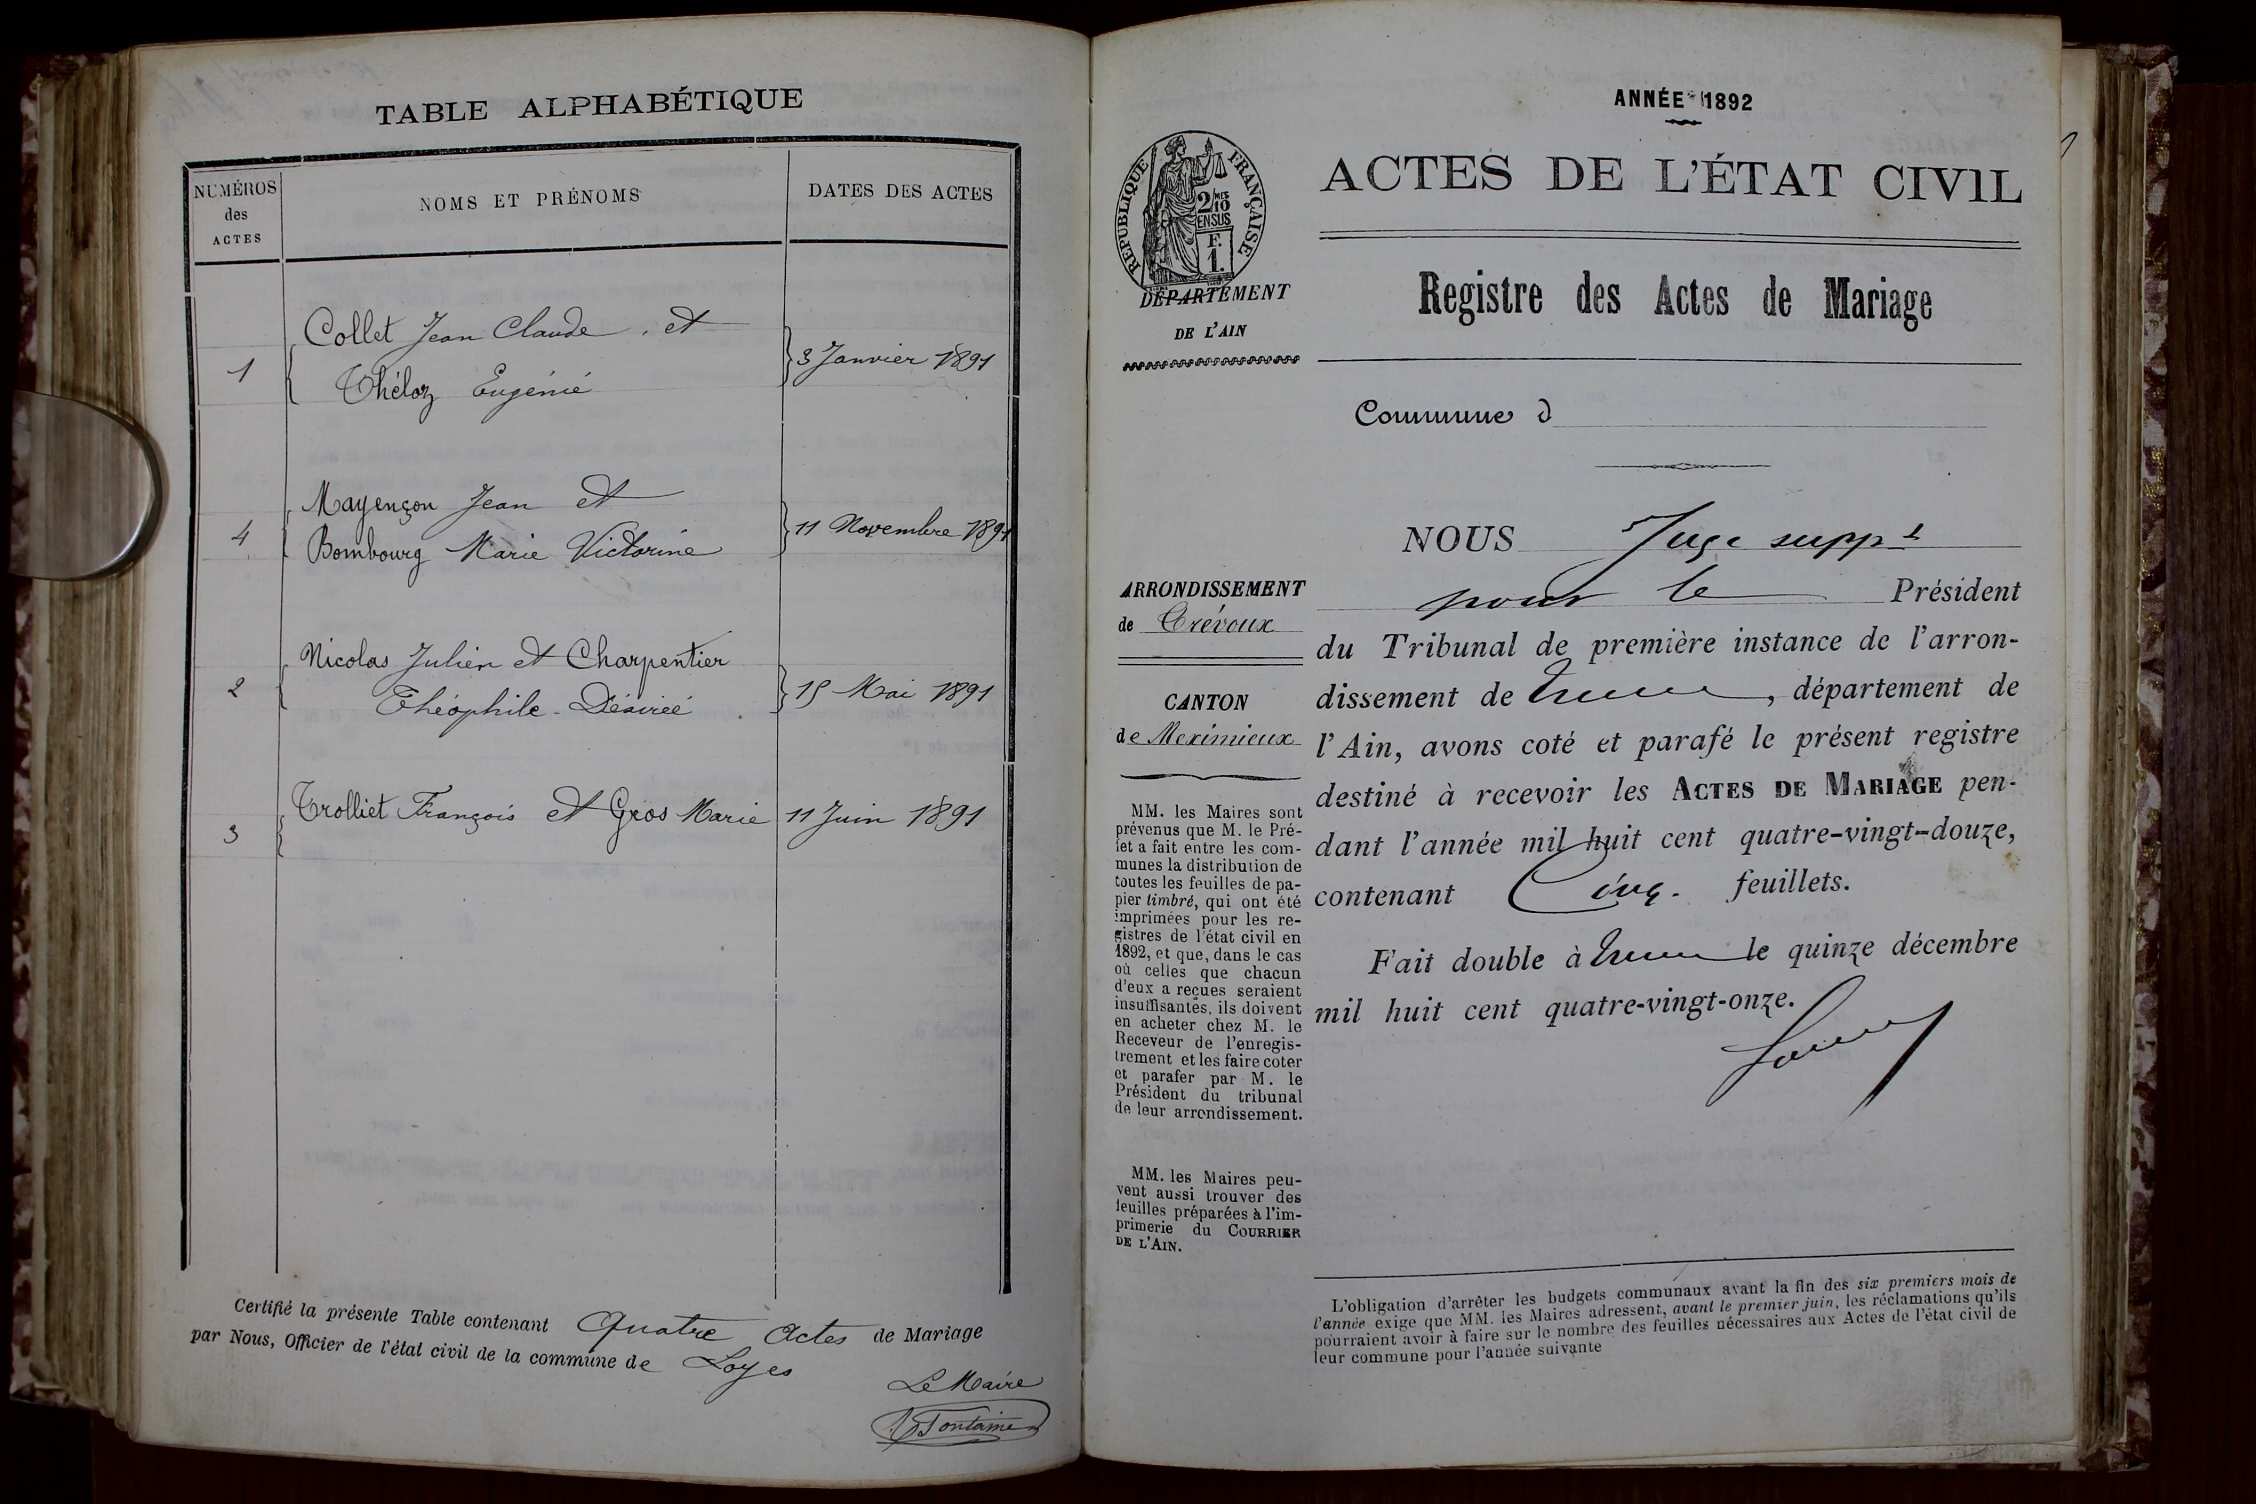 TABLE ALPHABÉTIQUE
NUMÉROS
des
ACTES
NOMS ET PRÉNOMS
DATES DES ACTES
Collet Jean Claude, et
1
3 Janvier 1891
Théloz Eugénie
Mayençon Jean et
4
11 Novembre 1891
Bombourg Marie Victorine
Nicolas Julien et Charpentier
2
15 Mai 1891
Théophile Désirée
Trolliet François et Gros Marie
11 Juin 1891
3
Certifié la présente Table contenant Quatre Actes de Mariage
par Nous, Officier de l'état civil de la commune de Loyes
Le Maire
Fontaine
ANNÉE 1892
RÉPUBLIQUE FRANÇAISE
2/MES
10
EN SUS
F.
1.
DÉPARTEMENT
DE L'AIN
ARRONDISSEMENT
de Trévoux
CANTON
de Meximieux
MM. les Maires sont
prévenus que M. le Pré-
fet a fait entre les com-
munes la distribution de
toutes les feuilles de pa-
pier timbré, qui ont été
imprimées pour les re-
gistres de l'état civil en
1892, et que, dans le cas
où celles que chacun
d'eux a reçues seraient
insuffisantes, ils doivent
en acheter chez M. le
Receveur de l'enregis-
trement et les faire coter
et parafer par M. le
Président du tribunal
de leur arrondissement.
MM. les Maires peu-
vent aussi trouver des
feuilles préparées à l'im-
primerie du COURRIER
DE L'AIN.
ACTES DE L'ÉTAT CIVIL
Registre des Actes de Mariage
Commune d
NOUS Juge suppt
pour le Président
du Tribunal de première instance de l'arron-
dissement de Trévoux, département de
l'Ain, avons coté et parafé le présent registre
destiné à recevoir les ACTES DE MARIAGE pen-
dant l'année mil huit cent quatre-vingt-douze,
contenant Cinq. feuillets.
Fait double à Trévoux le quinze décembre
mil huit cent quatre-vingt-onze.
L'obligation d'arrêter les budgets communaux avant la fin des six premiers mois de
l'année exige que MM. les Maires adressent, avant le premier juin, les réclamations qu'ils
pourraient avoir à faire sur le nombre des feuilles nécessaires aux Actes de l'état civil de
leur commune pour l'année suivante